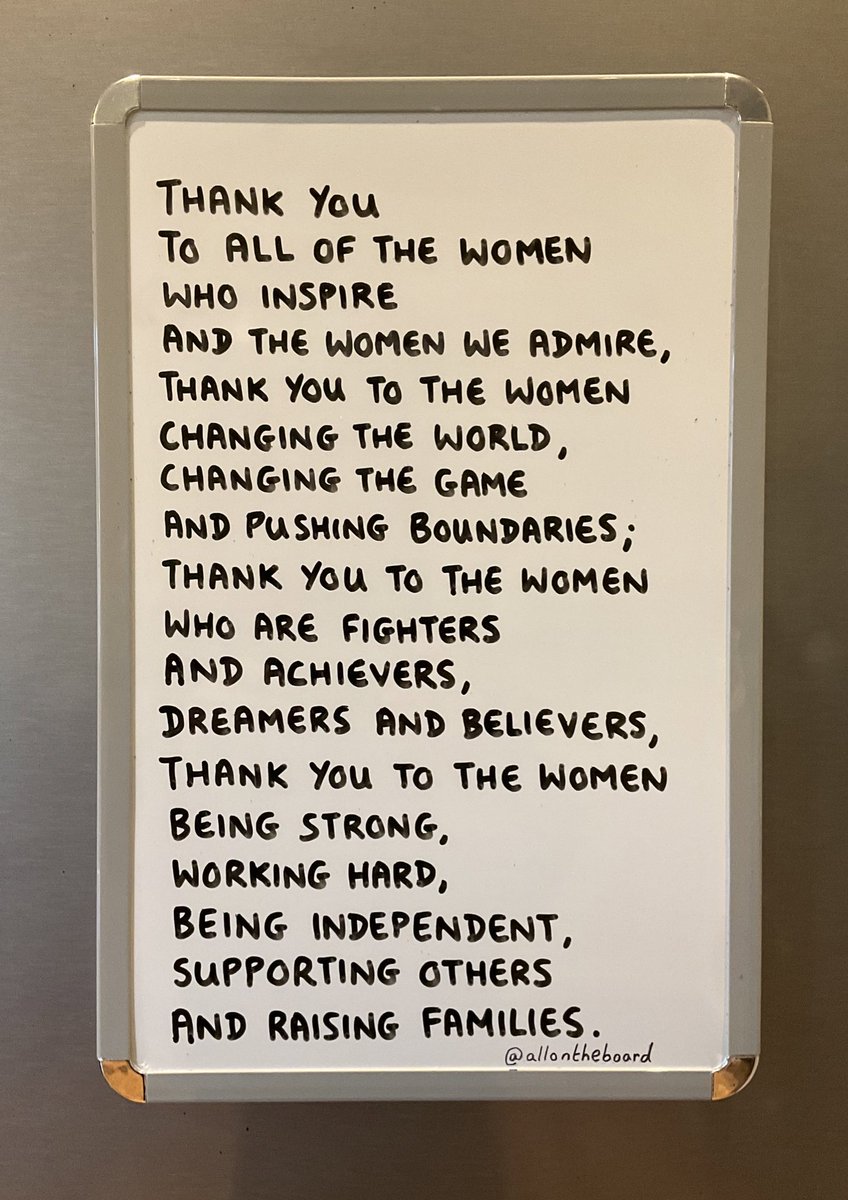 THANK YOU
TO ALL OF THE WOMEN
WHO INSPIRE
AND THE WOMEN WE ADMIRE,
THANK YOU TO THE WOMEN
CHANGING THE WORLD,
CHANGING THE GAME
AND PUSHING BOUNDARIES;
THANK YOU TO THE WOMEN
WHO ARE FIGHTERS
AND ACHIEVERS,
DREAMERS AND BELIEVERS,
THANK YOU TO THE WOMEN
BEING STRONG,
WORKING HARD,
BEING INDEPENDENT,
SUPPORTING OTHERS
AND RAISING FAMILIES.
@allontheboard